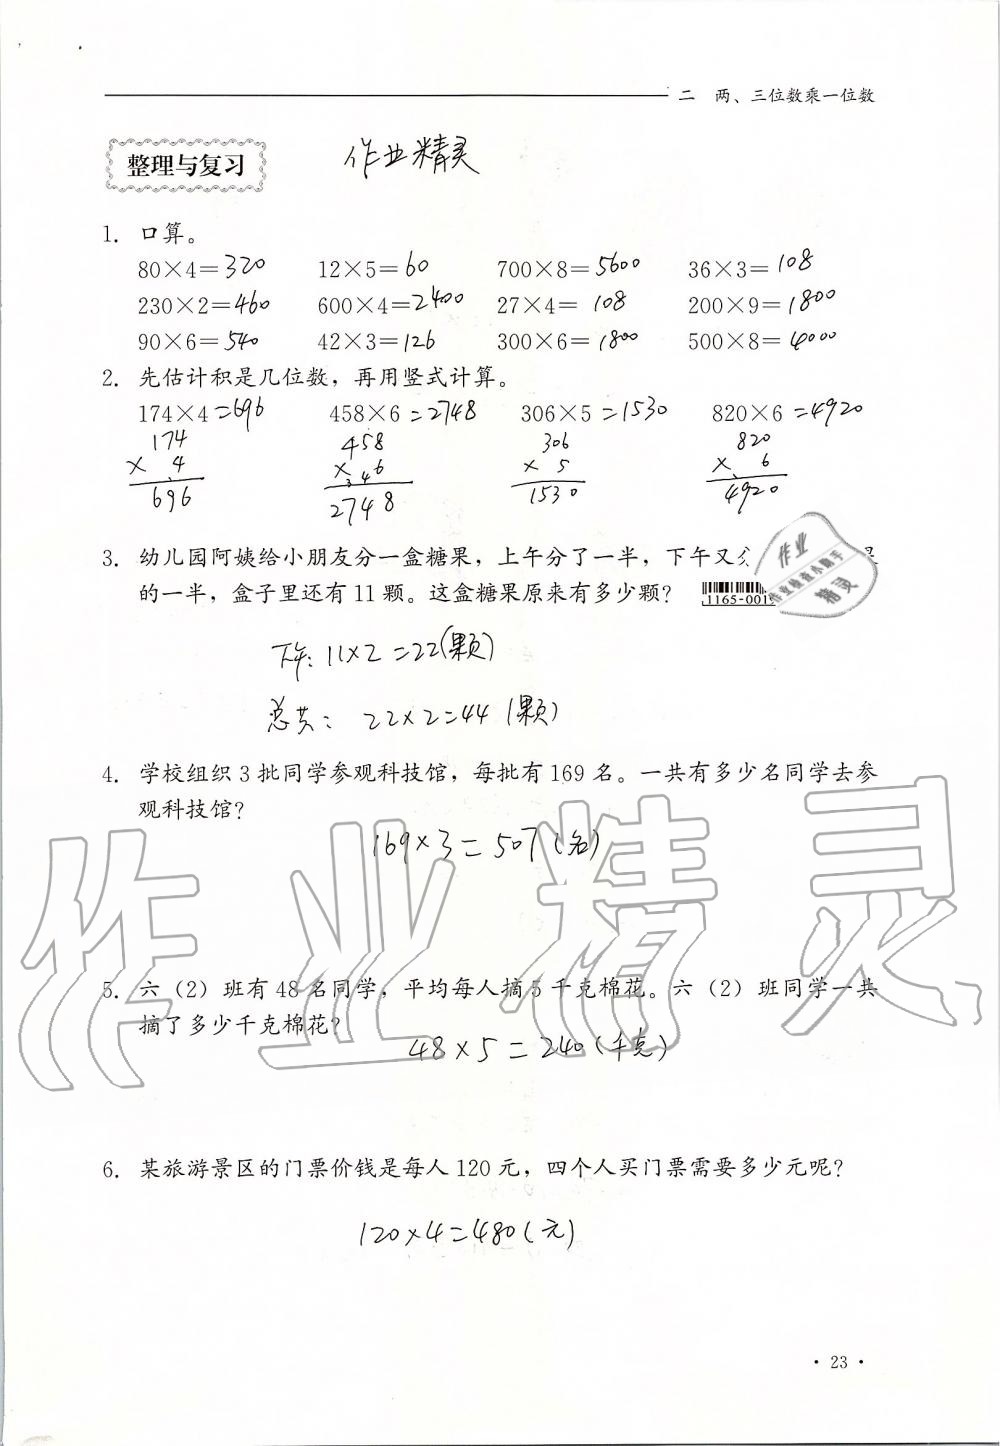 二 两、三位数乘一位数
整理与复习
作业精灵
1. 口算。
80×4=320 12×5=60 700×8=5600 36×3=108
230×2=460 600×4=2400 27×4=108 200×9=1800
90×6=540 42×3=126 300×6=1800 500×8=4000
2. 先估计积是几位数，再用竖式计算。
174×4=696 458×6=2748 306×5=1530 820×6=4920
174 458 306 820
× 4 × 6 × 5 × 6
696 2748 1530 4920
3. 幼儿园阿姨给小朋友分一盒糖果，上午分了一半，下午又分
的一半，盒子里还有11颗。这盒糖果原来有多少颗？
1165-001
作业
作业检查小助手
精灵
下午：11×2=22(颗)
总共：22×2=44(颗)
4. 学校组织3批同学参观科技馆，每批有169名。一共有多少名同学去参
观科技馆？
169×3=507(名)
作业精灵
5. 六（2）班有48名同学，平均每人摘5千克棉花。六（2）班同学一共
摘了多少千克棉花？
48×5=240(千克)
6. 某旅游景区的门票价钱是每人120元，四个人买门票需要多少元呢？
120×4=480(元)
·23·